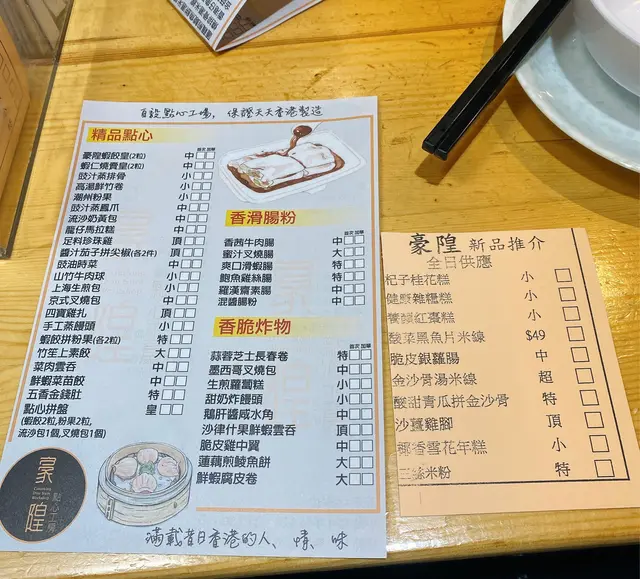 自設點心工場， 保證天天香港製造
精品點心
首次 加單
豪隍蝦餃皇(2粒) 中
蝦仁燒賣皇(2粒) 中
豉汁蒸排骨 小
高湯鮮竹卷 小
潮州粉果 小
豉汁蒸鳳爪 中
流沙奶黃包 中
龍仔馬拉糕 中
足料珍珠雞 頂
醬汁茄子拼尖椒(各2件) 頂
豉油時菜 中
山竹牛肉球 小
上海生煎包 小
京式叉燒包 中
四寶雞扎 頂
手工蒸饅頭 小
蝦餃拼粉果(各2粒) 特
竹笙上素餃 大
菜肉雲吞 中
鮮蝦菜苗餃 中
五香金錢肚 特
點心拼盤 皇
(蝦餃2粒,粉果2粒,
流沙包1個,叉燒包1個)
香滑腸粉
首次 加單
香茜牛肉腸 中
蜜汁叉燒腸 大
爽口滑蝦腸 特
鮑魚雞絲腸 特
羅漢齋素腸 中
混醬腸粉 中
香脆炸物
首次 加單
蒜蓉芝士長春卷 特
墨西哥叉燒包 中
生煎蘿蔔糕 小
甜奶炸饅頭 小
鵝肝醬咸水角 中
沙律什果鮮蝦雲吞 頂
脆皮雞中翼 中
蓮藕煎鯪魚餅 大
鮮蝦腐皮卷 大
豪隍
點心工房
滿載昔日香港的人、情、味
豪隍 新品推介
全日供應
杞子桂花糕 小
健康雜糧糕 小
紅棗糕 小
酸菜黑魚片米線 $49
脆皮銀蘿腸 中
金沙骨湯米線 超
酸甜青瓜拼金沙骨 特
沙薑雞腳 頂
椰香雪花年糕 小
三絲米粉 特